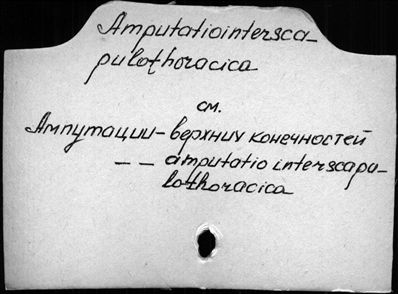 Amputatiointersca-
pulothoracica
см.
Ампутации-верхних конечностей
— — amputatio interscapu-
lothoracica